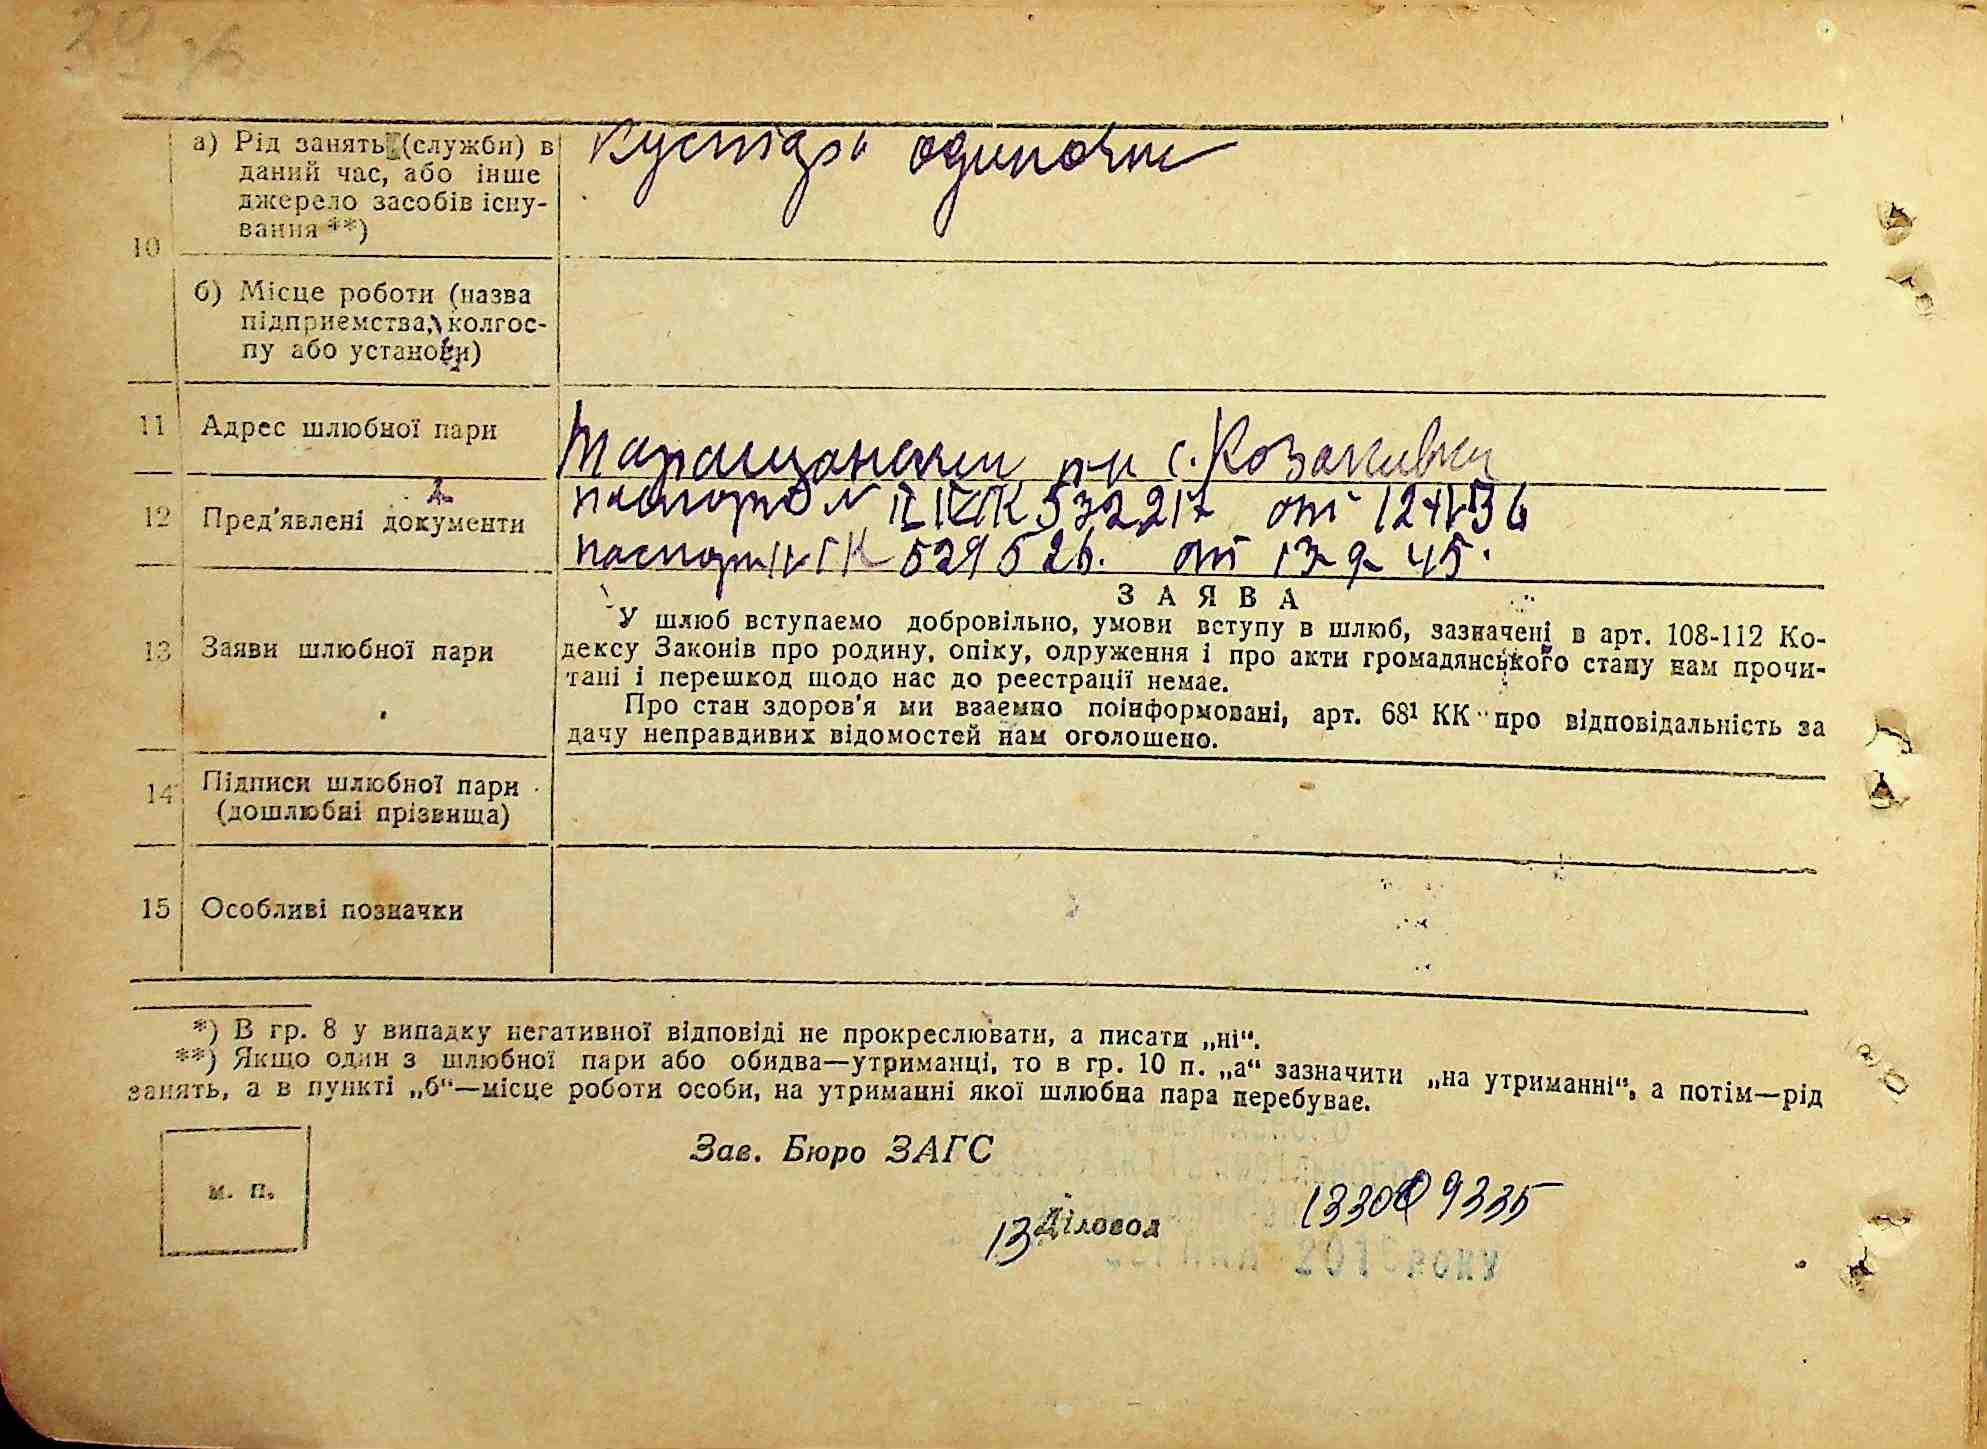 10
а) Рід занять (служби) в
даний час, або інше
джерело засобів існу-
вання **)
Кустарі одиночки
б) Місце роботи (назва
підприємства, колгос-
пу або установи)
11 Адрес шлюбної пари
Таращанский р-н с. Козаківка
12 Пред'явлені документи
2
паспорт № 532217 от 12 36
паспорт 529526. от 13 9 45.
13 Заяви шлюбної пари
ЗАЯВА
У шлюб вступаємо добровільно, умови вступу в шлюб, зазначені в арт. 108-112 Ко-
дексу Законів про родину, опіку, одруження і про акти громадянського стану нам прочи-
тані і перешкод щодо нас до реєстрації немає.
Про стан здоров'я ми взаємно поінформовані, арт. 68¹ КК про відповідальність за
дачу неправдивих відомостей нам оголошено.
14 Підписи шлюбної пари
(дошлюбні прізвища)
15 Особливі позначки
*) В гр. 8 у випадку негативної відповіді не прокреслювати, а писати „ні“.
**) Якщо один з шлюбної пари або обидва—утриманці, то в гр. 10 п. „а“ зазначити „на утриманні“, а потім—рід
занять, а в пункті „б“—місце роботи особи, на утриманні якої шлюбна пара перебуває.
Зав. Бюро ЗАГС
м. п.
13 Діловод
9335
року